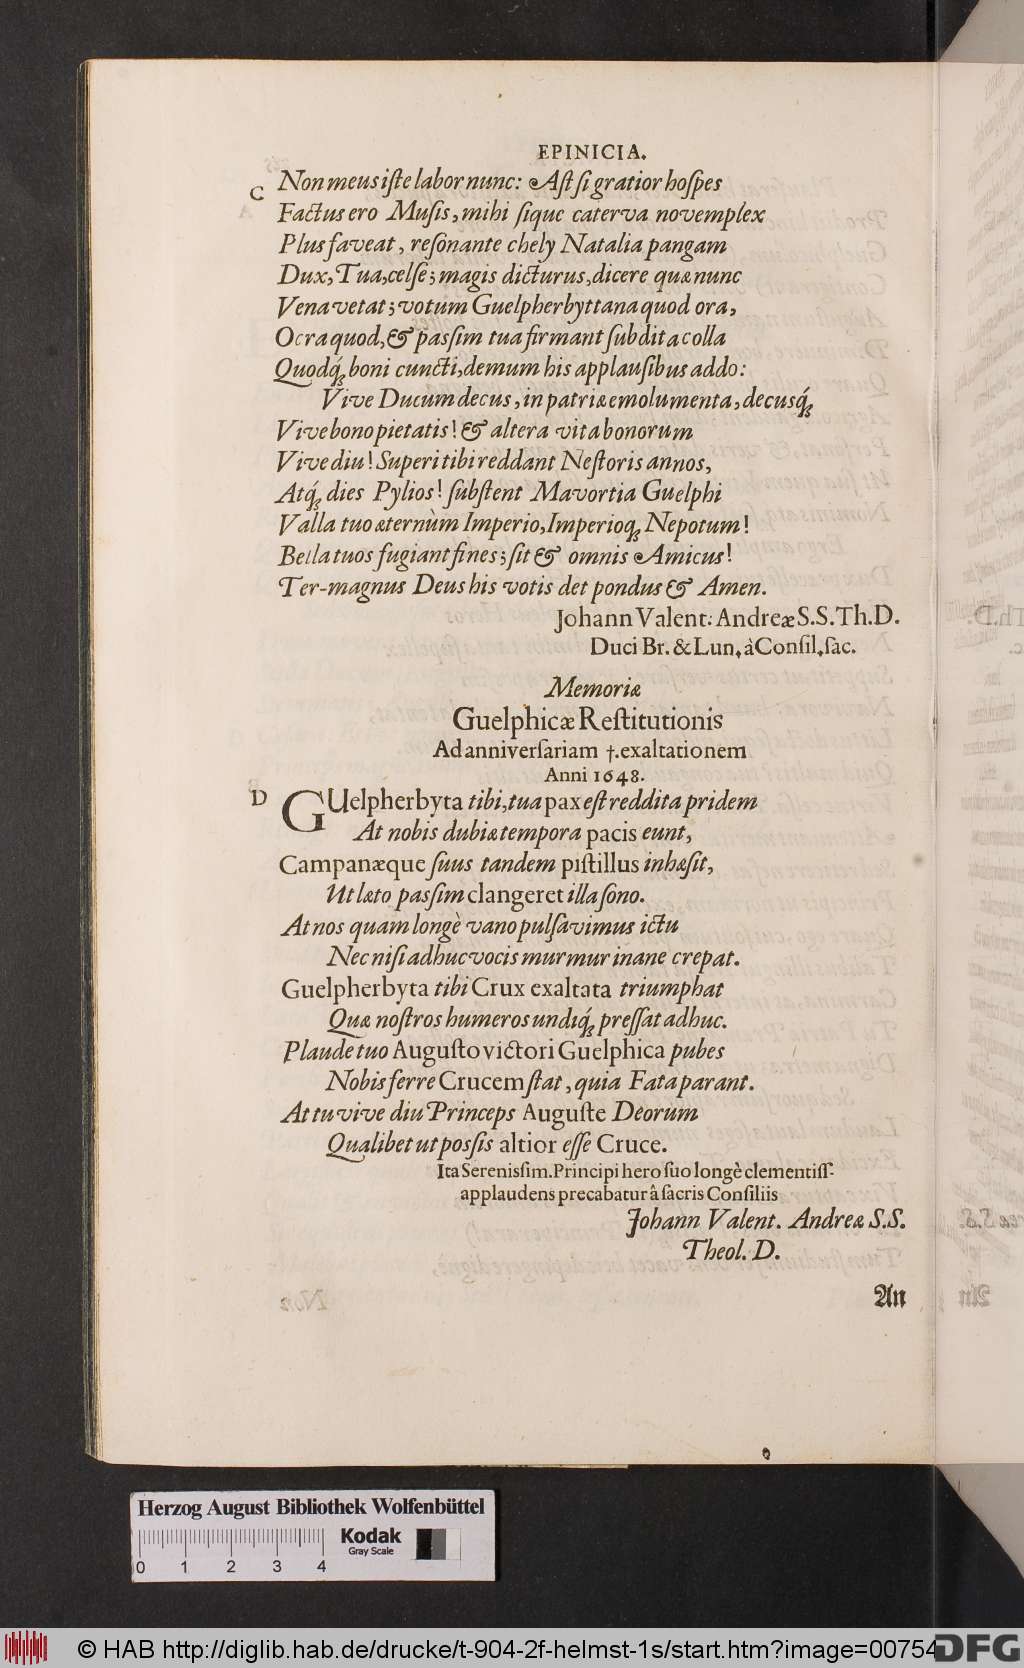 EPINICIA.
C
Non meus iſte labor nunc: Aſt ſi gratior hoſpes
Factus ero Muſis, mihi ſique caterva novemplex
Plus faveat, reſonante chely Natalia pangam
Dux, Tua, celſe; magis dicturus, dicere quæ nunc
Vena vetat; votum Guelpherbyttana quod ora,
Ocra quod, & paſſim tua firmant ſubdita colla
Quodq́; boni cuncti, demum his applauſibus addo:
Vive Ducum decus, in patriæ emolumenta, decusq́;
Vive bono pietatis! & altera vita bonorum
Vive diu! Superi tibi reddant Neſtoris annos,
Atq́; dies Pylios! ſubſtent Mavortia Guelphi
Valla tuo æternùm Imperio, Imperioq; Nepotum!
Bella tuos fugiant fines; ſit & omnis Amicus!
Ter-magnus Deus his votis det pondus & Amen.
Johann Valent: Andreæ S.S.Th.D.
Duci Br. & Lun. à Conſil. ſac.
Memoriæ
Guelphicæ Reſtitutionis
Ad anniverſariam †. exaltationem
Anni 1648.
D
GUelpherbyta tibi, tua pax eſt reddita pridem
At nobis dubiæ tempora pacis eunt,
Campanæque ſuus tandem piſtillus inhæſit,
Ut læto paſſim clangeret illa ſono.
At nos quam longè vano pulſavimus ictu
Nec niſi adhuc vocis murmur inane crepat.
Guelpherbyta tibi Crux exaltata triumphat
Quæ noſtros humeros undiq́; preſſat adhuc.
Plaude tuo Auguſto victori Guelphica pubes
Nobis ferre Crucem ſtat, quia Fata parant.
At tu vive diu Princeps Auguſte Deorum
Qualibet ut poſſis altior eſſe Cruce.
Ita Sereniſſim. Principi hero ſuo longè clementiſſ-
applaudens precabatur â ſacris Conſiliis
Johann Valent. Andreæ S.S.
Theol. D.
An
Herzog August Bibliothek Wolfenbüttel
Kodak
Gray Scale
0 1 2 3 4
© HAB http://diglib.hab.de/drucke/t-904-2f-helmst-1s/start.htm?image=00754
DFG